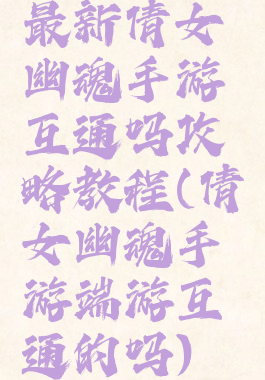 最新倩女
幽魂手游
互通吗攻
略教程(倩
女幽魂手
游端游互
通的吗)